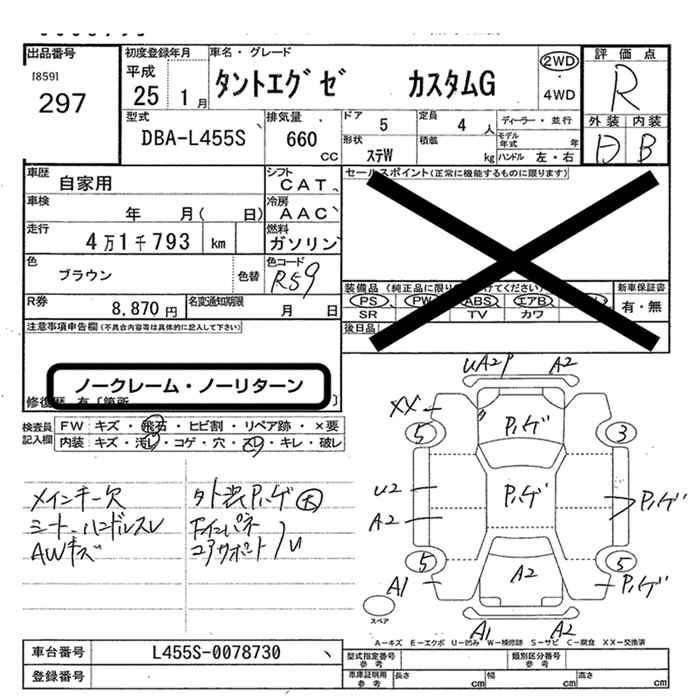 出品番号
[859]
297
初度登録年月
平成
25 1月
車名・グレード
タントエグゼ カスタムG
2WD
・
4WD
評価点
R
外装 内装
D B
型式
DBA-L455S
排気量
660
CC
ドア 5
定員 4 人
ディーラー・並行
形状 ステW
積載 kg
モデル年式 年
ハンドル 左・右
車歴
自家用
シフト
CAT
車検
年 月( 日)
冷房
AAC
走行
4万1千793 km
燃料
ガソリン
色
ブラウン
色替
色コード
R59
R券
8,870円
名変通知期限
月 日
セールスポイント(正常に機能するものに限ります)
装備品(純正品に限り
けてください)
新車保証書
PS PW ABS エアB
有・無
SR TV カワ
後日品
注意事項申告欄(不具合内容等は具体的に記入して下さい)
ノークレーム・ノーリターン
修復歴 有〔箇所 〕
検査員記入欄
FW キズ・飛石・ヒビ割・リペア跡・×要
内装 キズ・汚レ・コゲ・穴・スレ・キレ・破レ
メインキー欠
シート、ハンドルスレ
AWキズ
外装Pハゲ大
Fインパネ
コアサポート U
UA2P A2
XX
Pハゲ
5 3
U2
Pハゲ
Pハゲ
A2
5 5
A1
A2
Pハゲ
スペア
A1 A2
A-キズ E-エクボ U-凹み W-補修跡 S-サビ C-腐食 XX-交換済
車台番号
L455S-0078730
型式指定番号
参考
類別区分番号
参考
登録番号
車庫証明用
参考
長さ cm
幅 cm
高さ cm